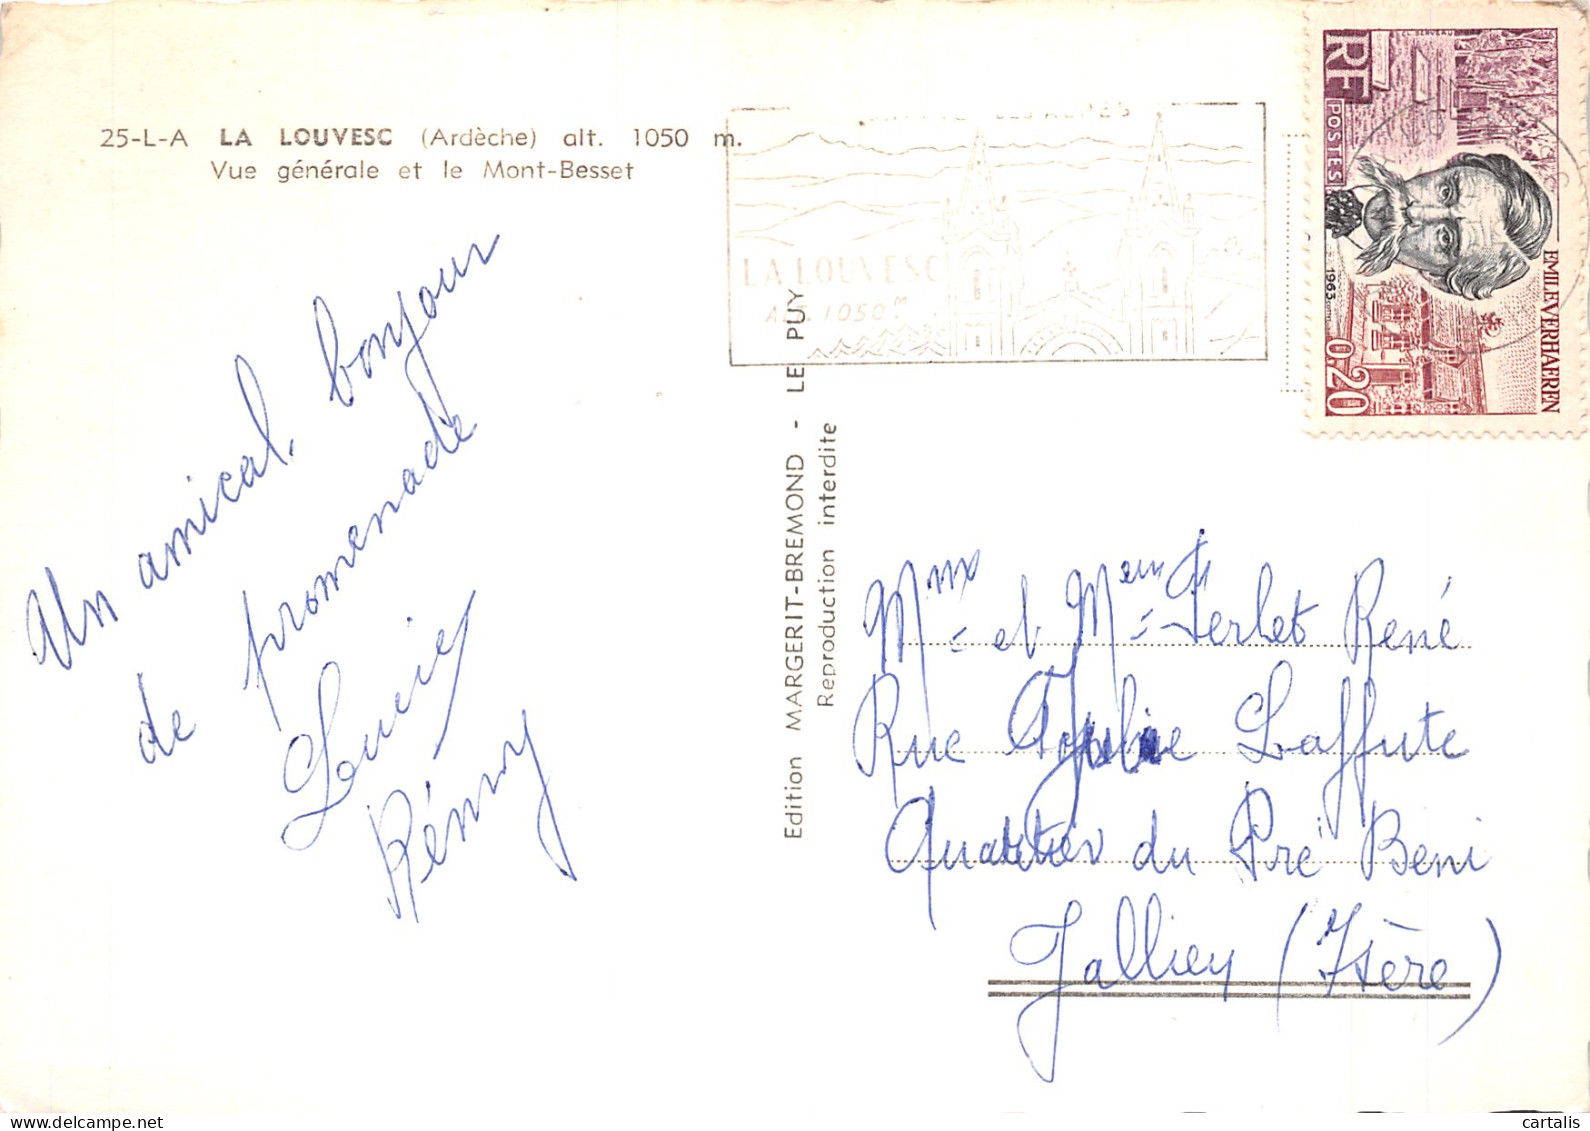 25-L-A LA LOUVESC (Ardèche) alt. 1050 m.
Vue générale et le Mont-Besset
Un amical, bonjour
de promenade
Lucie
Rémy
Edition MARGERIT-BREMOND - LE PUY
Reproduction interdite
LA LOUVESC
ALT. 1050 M
RF
POSTES
CL. SERVEAU
EMILE VERHAEREN
1963
0,20
Mme et Mr Ferlet René
Rue Laffute
Quartier du Pré Beni
Jallieu (Isère)
cartalis
www.delcampe.net